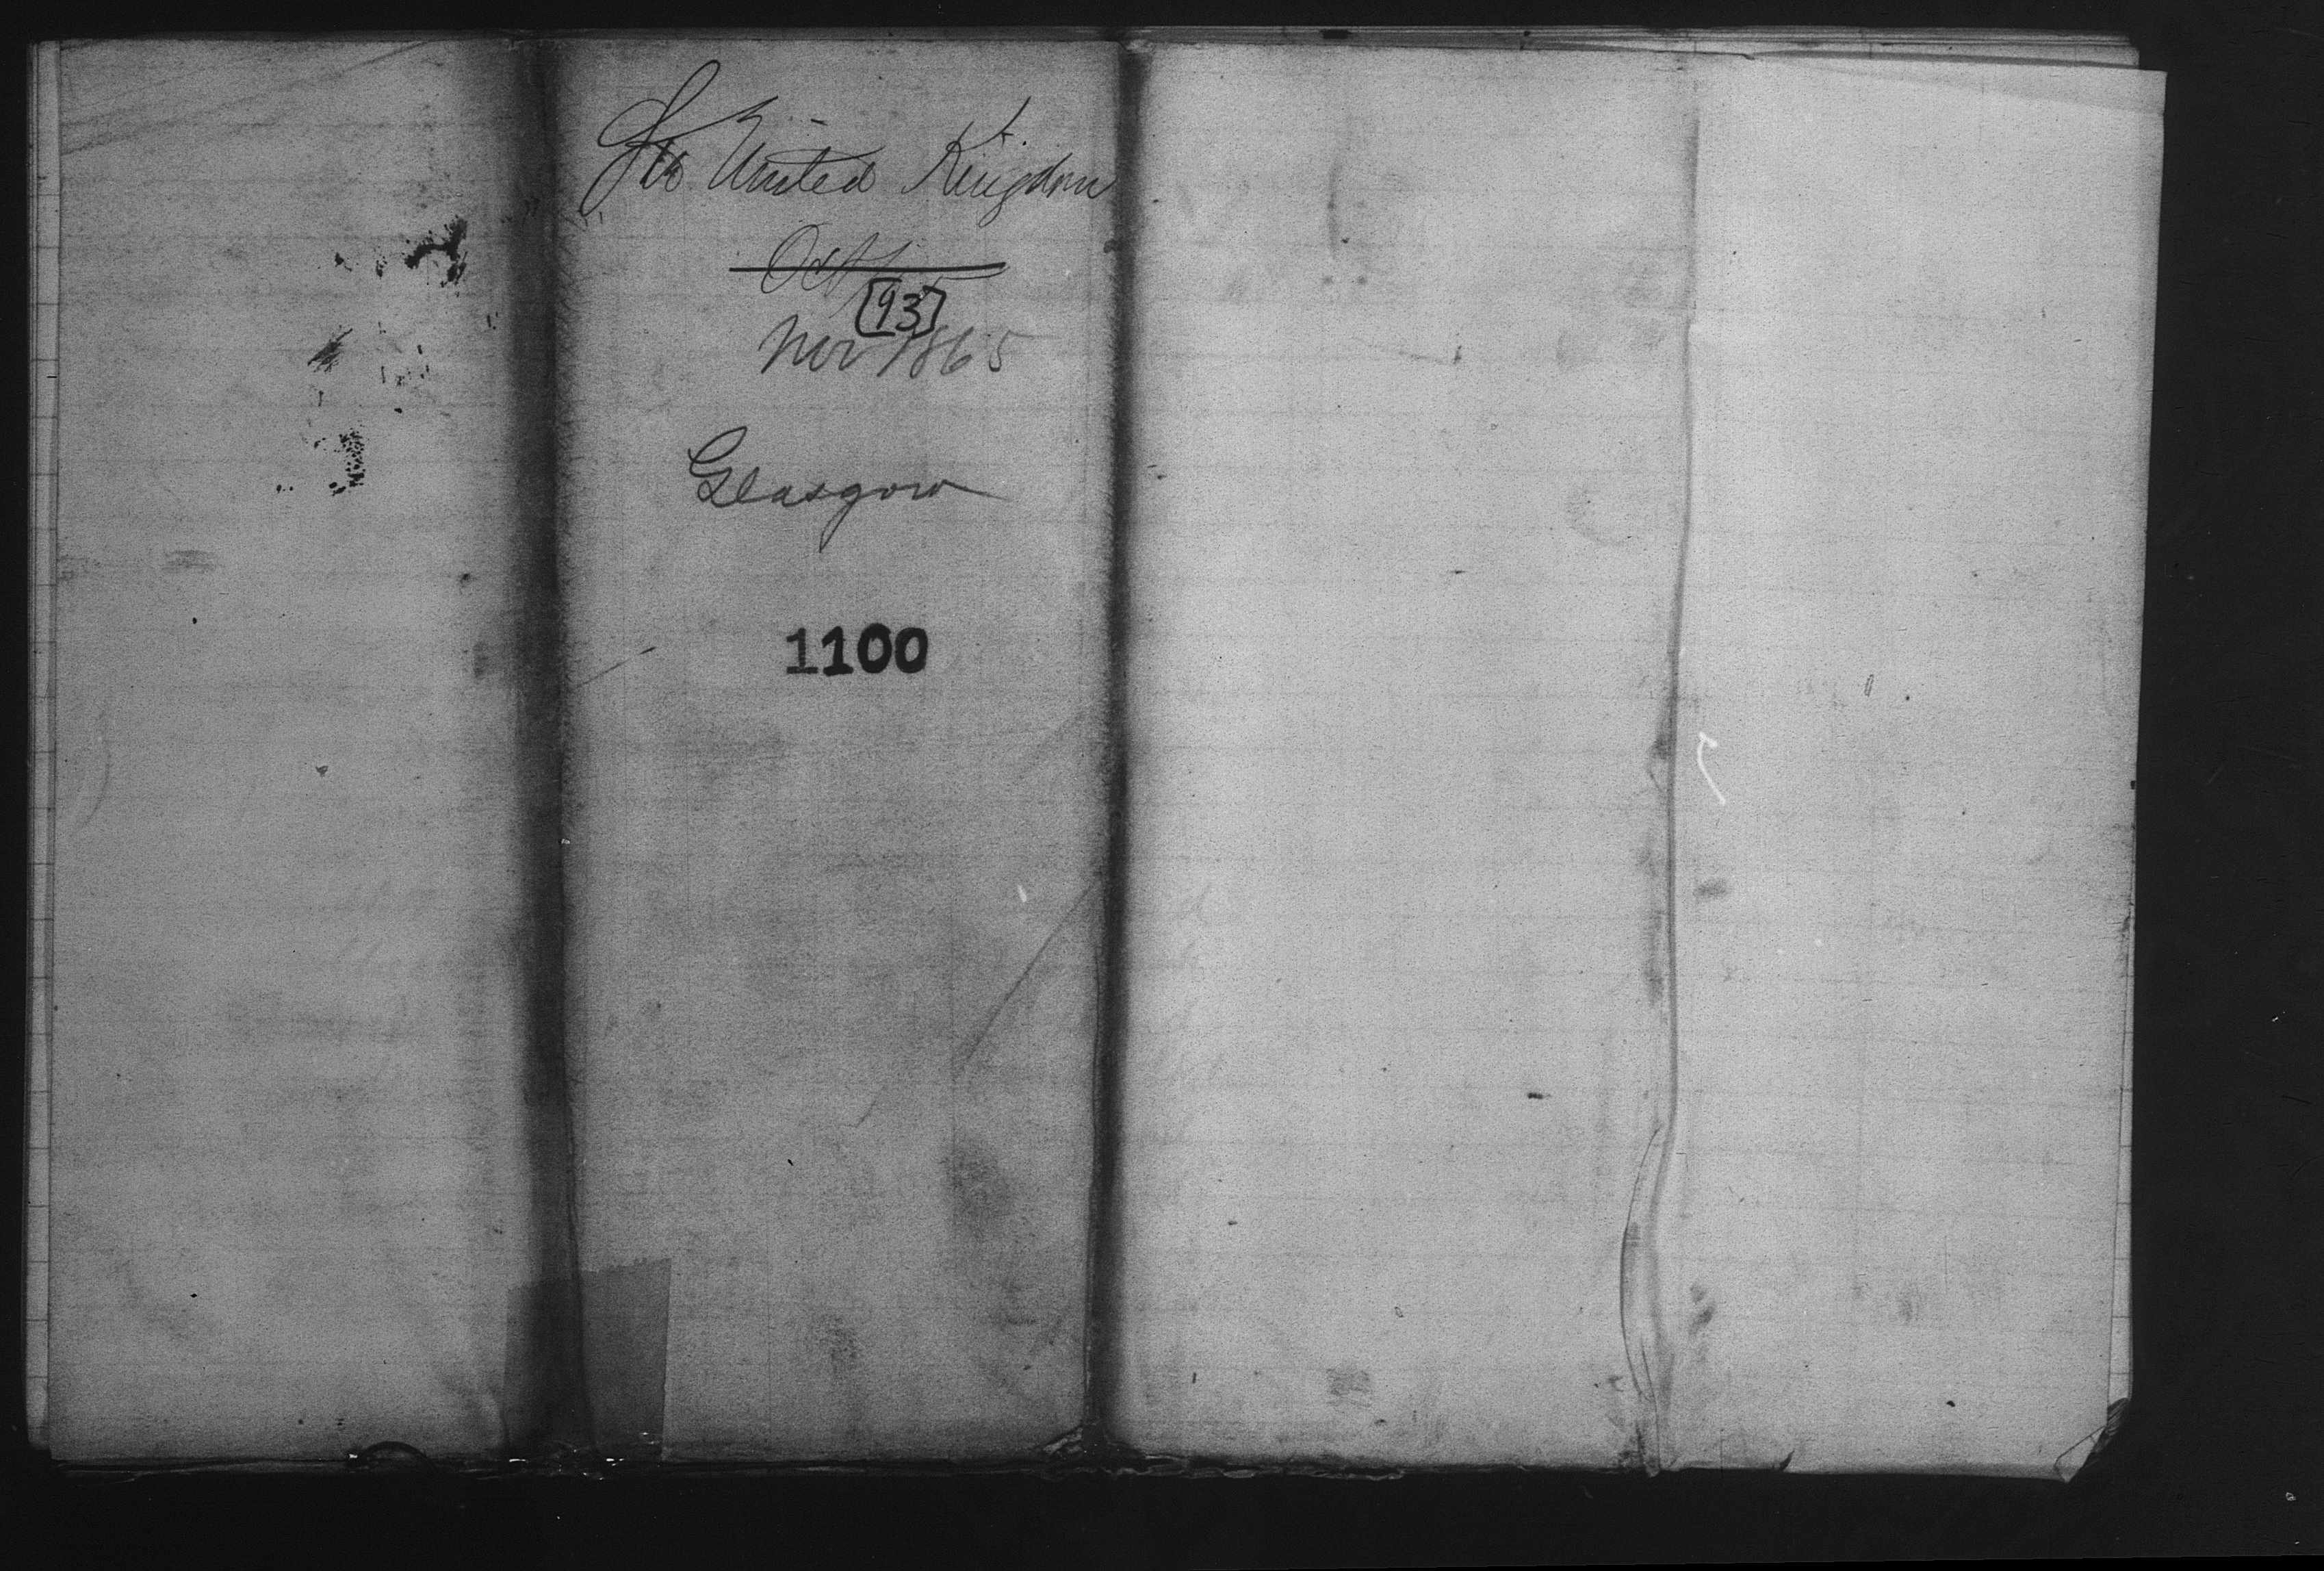 Str United Kingdom
Oct
[93]
Nov 1865
Glasgow
1100